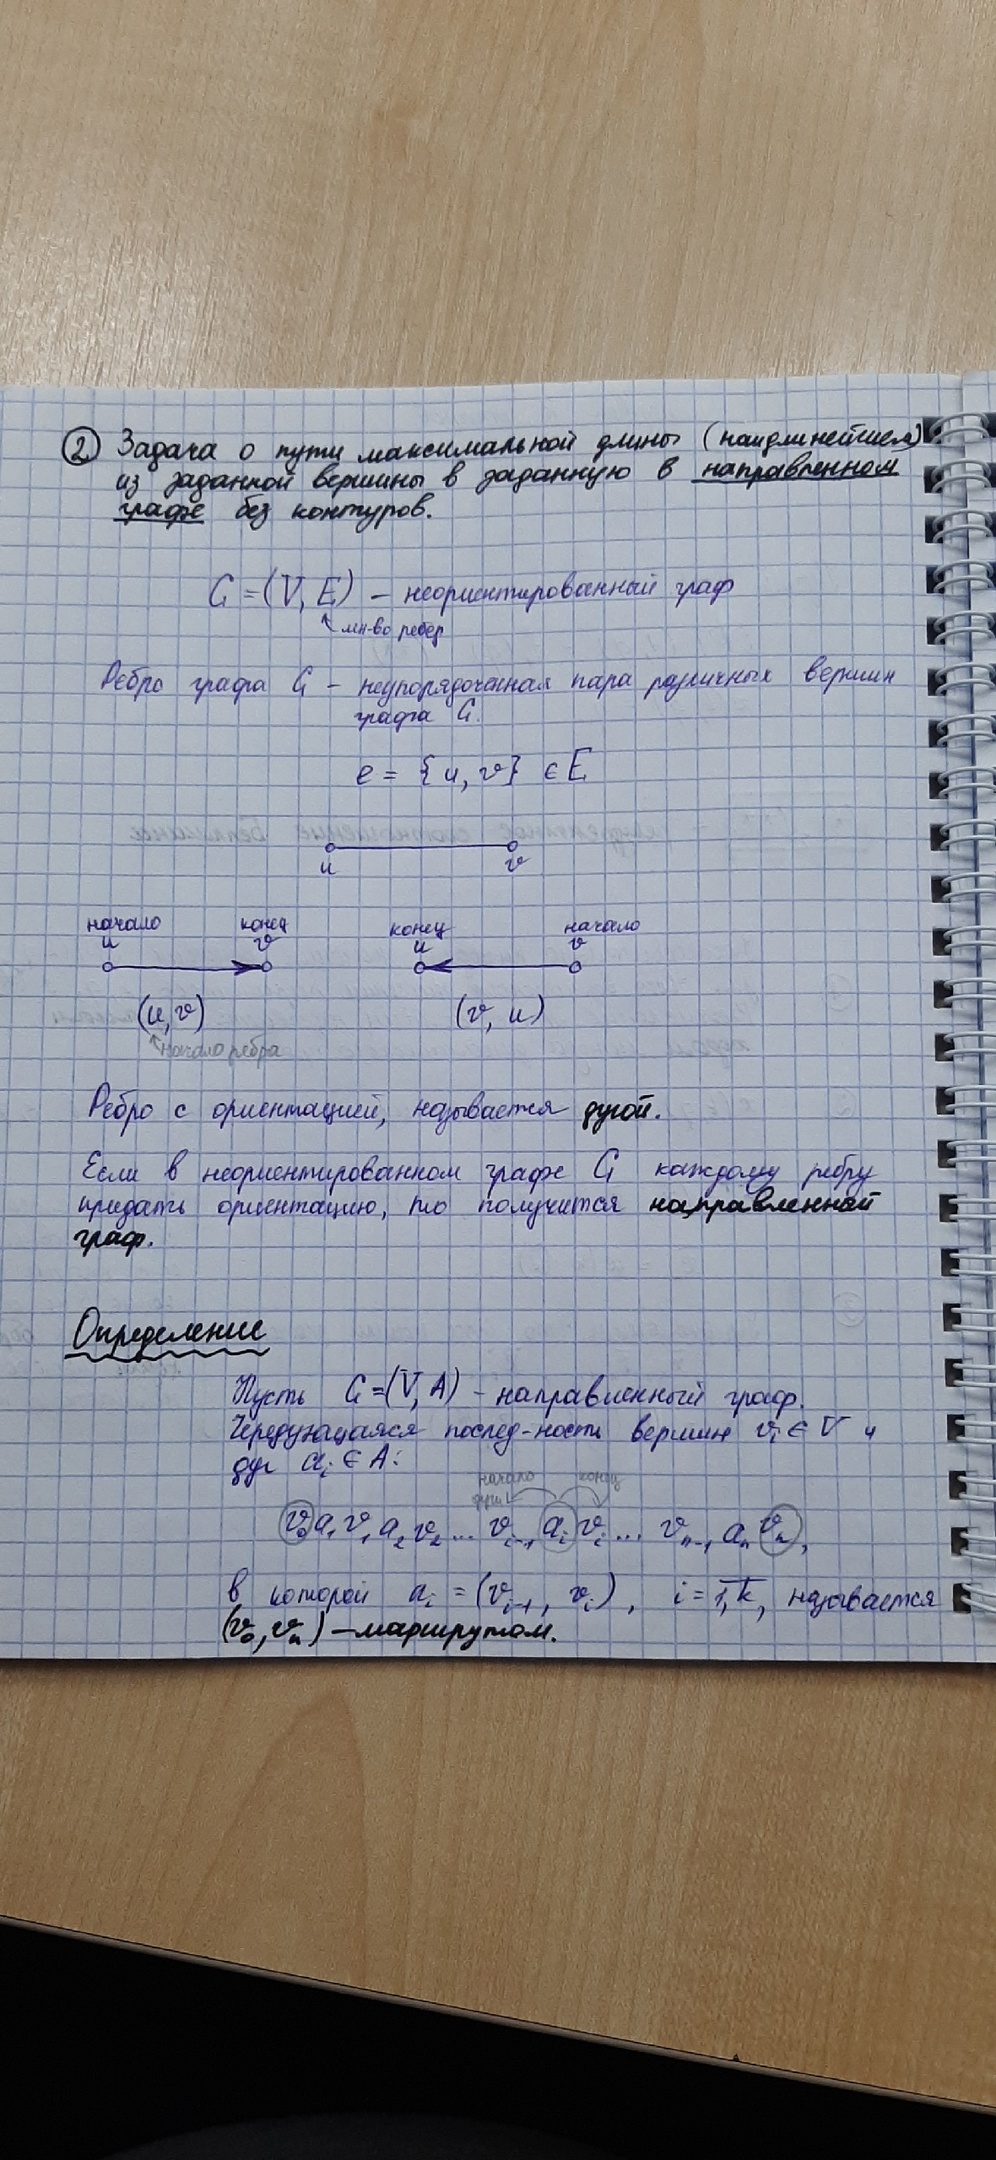 ② Задача о пути максимальной длины (наидлинейшем)
из заданной вершины в заданную в направленном
графе без контуров.
G = (V, E) – неориентированный граф
мн-во ребер
Ребро графа G – неупорядоченная пара различных вершин
графа G.
e = {u, v} ∈ E
u v
начало конец конец начало
u v u v
(u, v) (v, u)
начало ребра
Ребро с ориентацией, называется дугой.
Если в неориентированном графе G каждому ребру
придать ориентацию, то получится направленный
граф.
Определение
Пусть G = (V, A) – направленный граф.
Чередующаяся послед-ность вершин vᵢ ∈ V и
дуг aᵢ ∈ A:
начало конец
дуги
v₀ a₁ v₁ a₂ v₂ ... vᵢ₋₁ aᵢ vᵢ ... vₙ₋₁ aₙ vₙ,
в которой aᵢ = (vᵢ₋₁, vᵢ), i = 1, k, называется
(v₀, vₙ) – маршрутом.